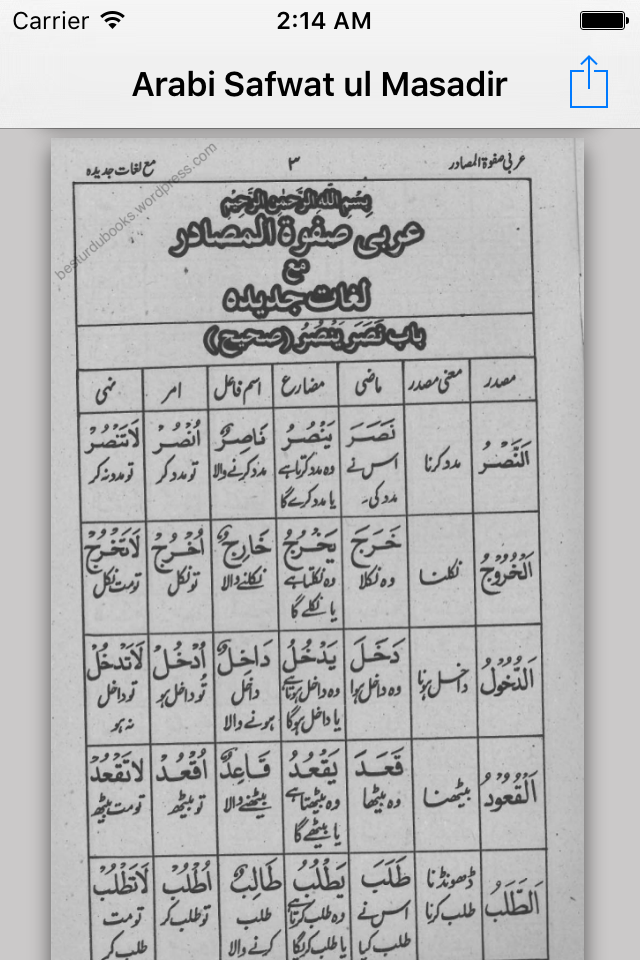 Carrier 2:14 AM
Arabi Safwat ul Masadir
عربی صفوۃ المصادر ۳ مع لغات جدیدہ
besturdubooks.wordpress.com
بِسْمِ اللّٰہِ الرَّحْمٰنِ الرَّحِیْمِ
عربی صفوۃ المصادر
مع
لغات جدیدہ
باب نَصَرَ یَنْصُرُ (صحیح)
مصدر معنی مصدر ماضی مضارع اسم فاعل امر نہی
اَلنَّصْرُ مدد کرنا نَصَرَ یَنْصُرُ نَاصِرٌ اُنْصُرْ لَاتَنْصُرْ
اس نے وہ مدد کرتا ہے مدد کرنے والا تو مدد کر تو مدد نہ کر
مدد کی۔ یا مدد کرے گا
اَلْخُرُوْجُ نکلنا خَرَجَ یَخْرُجُ خَارِجٌ اُخْرُجْ لَاتَخْرُجْ
وہ نکلا وہ نکلتا ہے نکلنے والا تو نکل تو مت نکل
یا نکلے گا
اَلدُّخُوْلُ داخل ہونا دَخَلَ یَدْخُلُ دَاخِلٌ اُدْخُلْ لَاتَدْخُلْ
وہ داخل ہوا وہ داخل ہوتا ہے داخل تُو داخل ہو تو داخل
یا داخل ہوگا ہونے والا نہ ہو
اَلْقُعُوْدُ بیٹھنا قَعَدَ یَقْعُدُ قَاعِدٌ اُقْعُدْ لَاتَقْعُدْ
وہ بیٹھا وہ بیٹھتا ہے بیٹھنے والا تو بیٹھ تو مت بیٹھ
یا بیٹھے گا
اَلطَّلَبُ ڈھونڈنا طَلَبَ یَطْلُبُ طَالِبٌ اُطْلُبْ لَاتَطْلُبْ
طلب کرنا اس نے وہ طلب کرتا ہے طلب تو طلب کر تو مت
طلب کیا یا طلب کریگا کرنے والا طلب کر